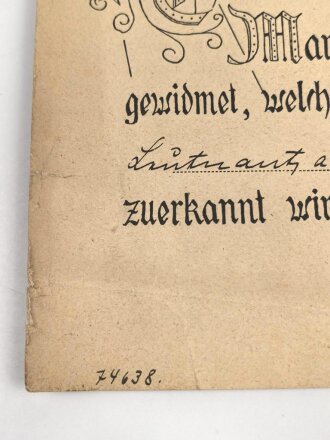 Mar
gewidmet, welch
Leutnant, a
zuerkannt wir
74638.